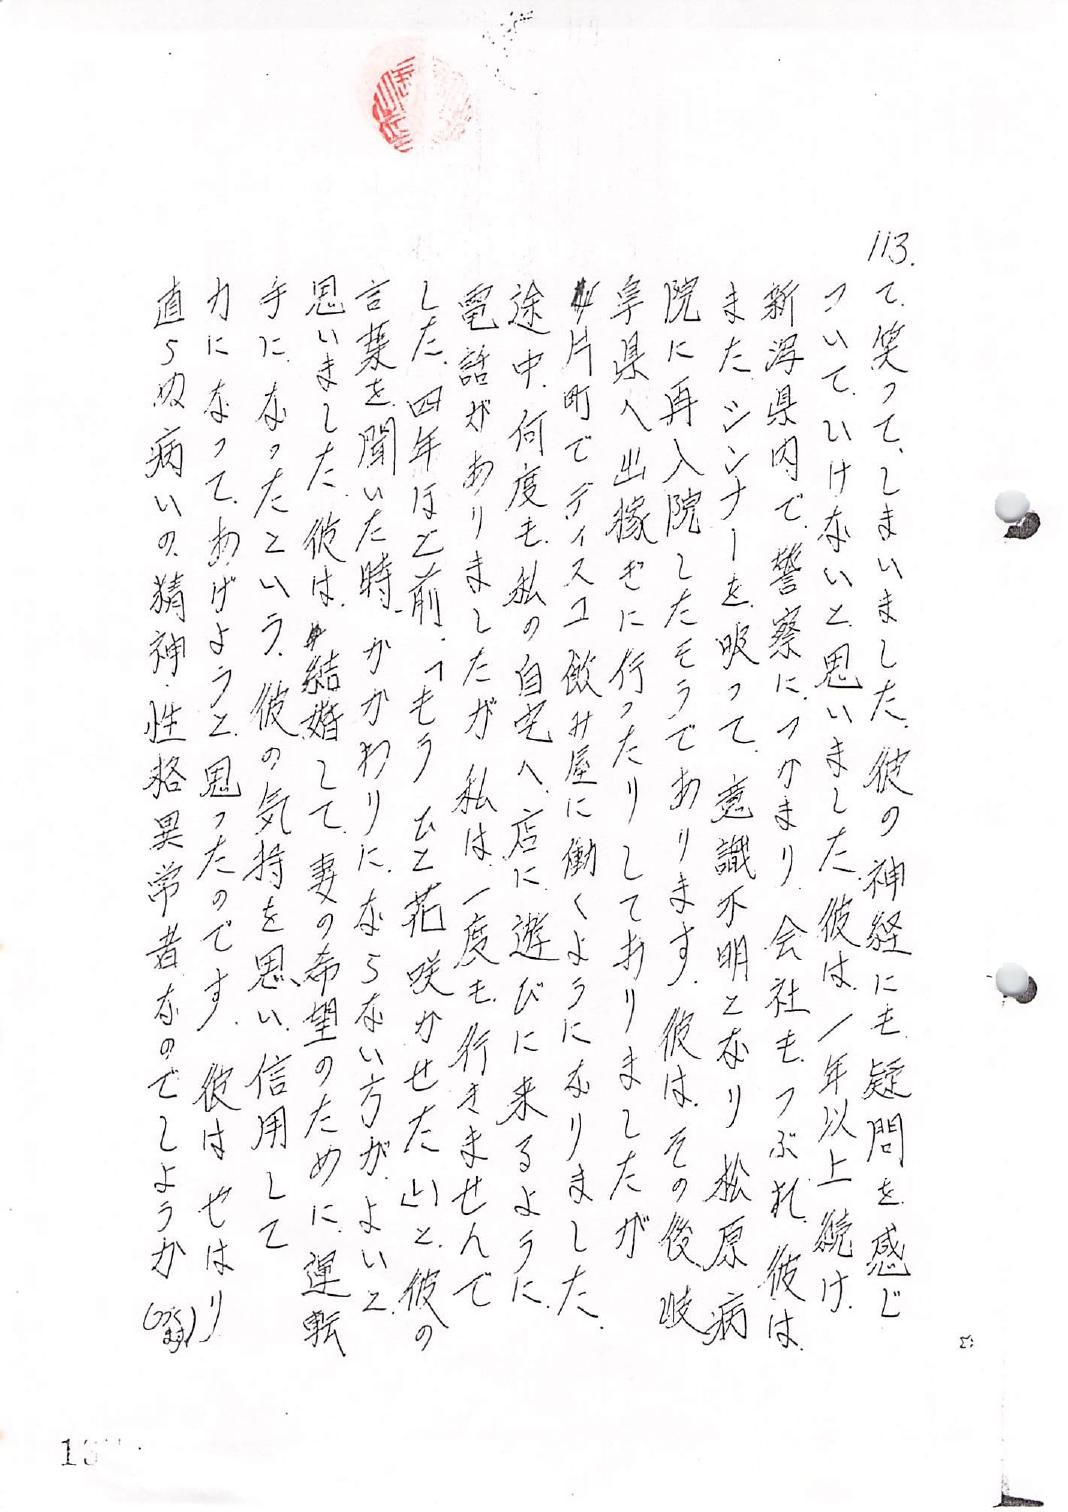 113.
て、笑って、しまいました、彼の神経にも疑問を感じ
ついて、いけないと思いました、彼は、1年以上続け、
新潟県内で、警察に、つかまり、会社も、つぶれ、彼は、
また、シンナーを、吸って、意識不明となり、松原病
院に再入院したそうであります。彼は、その後、岐
阜県へ出稼ぎに行ったりしておりましたが
片町でディスコ、飲み屋に働くようになりました、
途中、何度も、私の自宅へ、店に、遊びに来るように、
電話がありましたが、私は、一度も、行きませんで
した、四年ほど前、「もうひと花咲かせたい」と、彼の
言葉を、聞いた時、かかわりにならない方が、よいと、
思いました、彼は、結婚して、妻の希望のために、運転
手に、なったという、彼の気持を思い、信用して
力になって、あげようと、思ったのです、彼はやはり
直らぬ病いの、精神・性格異常者なのでしょうか
(つづきます)
13